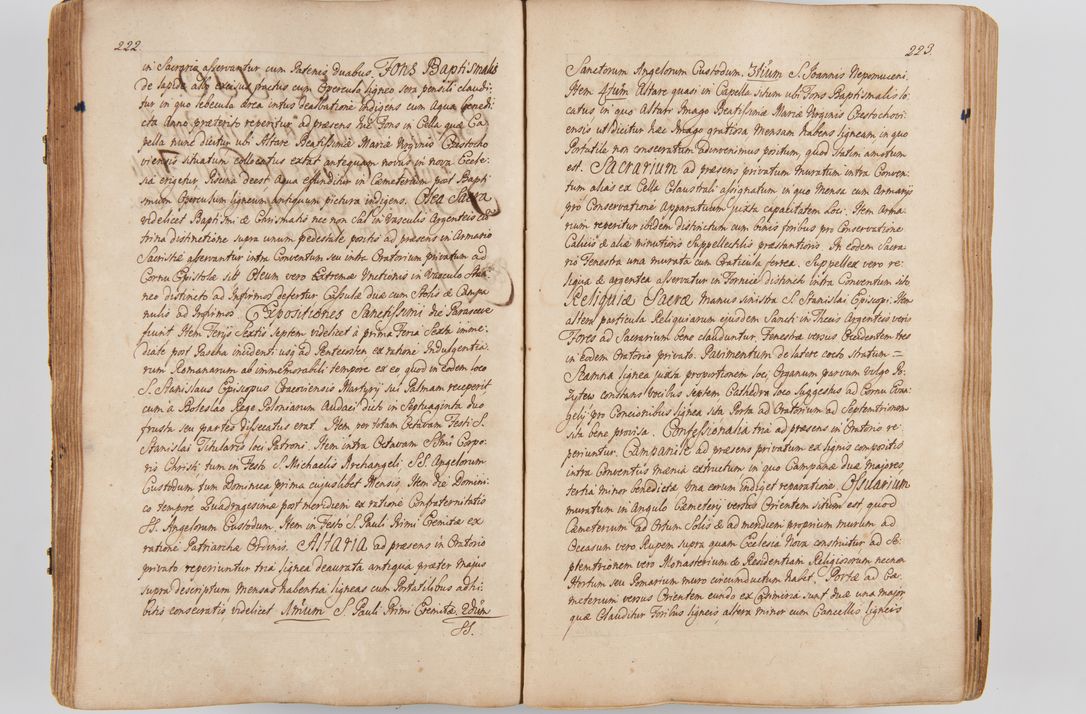 222.
in Sacrario asservantur cum Patenis duabus. FONS Baptismalis
de lapide aliq excisus factus cum Operculo ligneo sera pensili claudi
tur in quo lebecula aerea intus dealbatione indigens cum Aqua benedi
cta Anno praeterito reperitur ad praesens hic Fons in Cella quae Ca
pella nunc dicitur ubi Altare Beatissimae Mariae Virginis Czestocho
viensis situatum collocatus extat antequam novus in nova Eccle-
sia erigetur, Piscina deest Aqua effunditur in Caemeterium post Bapti
smum Operculum ligneum antiquum pictura indigens. Olea Sacra
videlicet Baptismi & Chrismatis nec non in Vasculis Argenteis cu
trina distinctione supra unum pedestale positis ad praesens in Armario
Sacristiae asservantur intra Conventum seu intra Oratorium privatum ad
Cornu Epistolae sito Oleum vero Extremae Unctionis in Vasculo Stan
neo distincto ad Infirmos defertur Capsulae duae cum Stolis & Campa
nulis ad Infirmos. Expositiones Sanctissimi die Parasceve
fiunt Item Ferijs Sextis Septem videlicet à prima Feria Sexta imme
diate post Pascha incidenti usq ad Pentecosten ex ratione Indulgentia
rum Romanarum ab immemorabili tempore ex eo quod in eodem loco
S. Stanislaus Episcopus Cracoviensis Martyrij sui Palmam receperit
cum à Boleslao Rege Poloniarum Audaci dicto in Septuaginta duo
frusta seu partes dissecatus erat. Item per totam Octavam Festi S.
Stanislai Titularis loci Patroni. Item intra Octavam SSmi Corpo
ris Christi tum in Festo S. Michaelis Archangeli, SS. Angelorum
Custodum tum Dominica prima cujuslibet Mensis. Item die Domini
co tempore Quadragesimae post meridiem ex ratione Confraternitatis
SS. Angelorum Custodum. Item in Festo S. Pauli Primi Eremitae ex
ratione Patriarchae Ordinis. Altaria ad praesens in Oratorio
privato reperiuntur tria lignea deaurata antiqua praeter Majus
supra descriptum Mensas habentia ligneas cum Portatilibus adhi
bitis consecratis, videlicet 1mum S. Pauli Primi Eremitae, 2dum
SS.
223.
Sanctorum Angelorum Custodum. 3tium S. Joannis Nepomuceni.
Item 4tum Altare quasi in Capella situm ubi Fons Baptismalis lo
catus in quo Altari Imago Beatissimae Mariae Virginis Czestochovi
ensis ut dicitur haec Imago gratiosa Mensam habens ligneam in quo
Portatile non consecratum adinvenimus positum, quod statim amotum
est. Sacrarium ad praesens privatum muratum intra Conven-
tum alias ex Cella Claustrali assignatum in quo Mensa cum Armarijs
pro Conservatione Apparatuum juxta capacitatem loci. Item Arma-
rium reperitur ibidem distinctum cum binis foribus pro Conservatione
Calicis & aliae minutioris Suppellectilis praestantioris. In eodem Sacra
rio Fenestra una murata cum Craticula ferrea. Supellex vero re-
liqua & argentea asservatur in Fornice distincto intra Conventum sito
Reliquiae Sacrae Manus sinistra S. Stanislai Episcopi. Item
altera particula Reliquiarum ejusdem Sancti in Thecis Argenteis veris
Fores ad Sacrarium bene clauduntur. Fenestrae versus Occidentem tres
in eodem Oratorio privato. Pavimentum de latere cocto stratum =
Scamna lignea juxta proportionem loci, Organum parvum vulgo Po
zytew constans Vocibus Septem Cathedra loco Suggestus ad Cornu Evan
gelij pro Concionibus lignea sita Porta ad Oratorium ad Septentrionem
sita bene provisa. Confessionalia tria ad praesens in Oratorio re-
periuntur. Campanile ad praesens privatum ex lignis compositis
intra Conventus maenia extructum in quo Campanae duae majores
tertia minor benedictae Una earum indiget reparatione. Ossuarium
muratum in Angulo Caemeterij versus Orientem situm est quod
Caemeterium ad Ortum Solis & ad meridiem proprium murum ad
Occasum vero Rupem supra quam Ecclesia Nova construitur ad Se
ptemtrionem vero Monasterium & Residentiam Religiosorum necnon
Hortum seu Pomarium muro circumductum habet. Portae ad Cae
meterium versus Orientem eundo ex Casimiria sunt duae una major
quae Clauditur Foribus ligneis, altera minor cum Cancellis ligneis